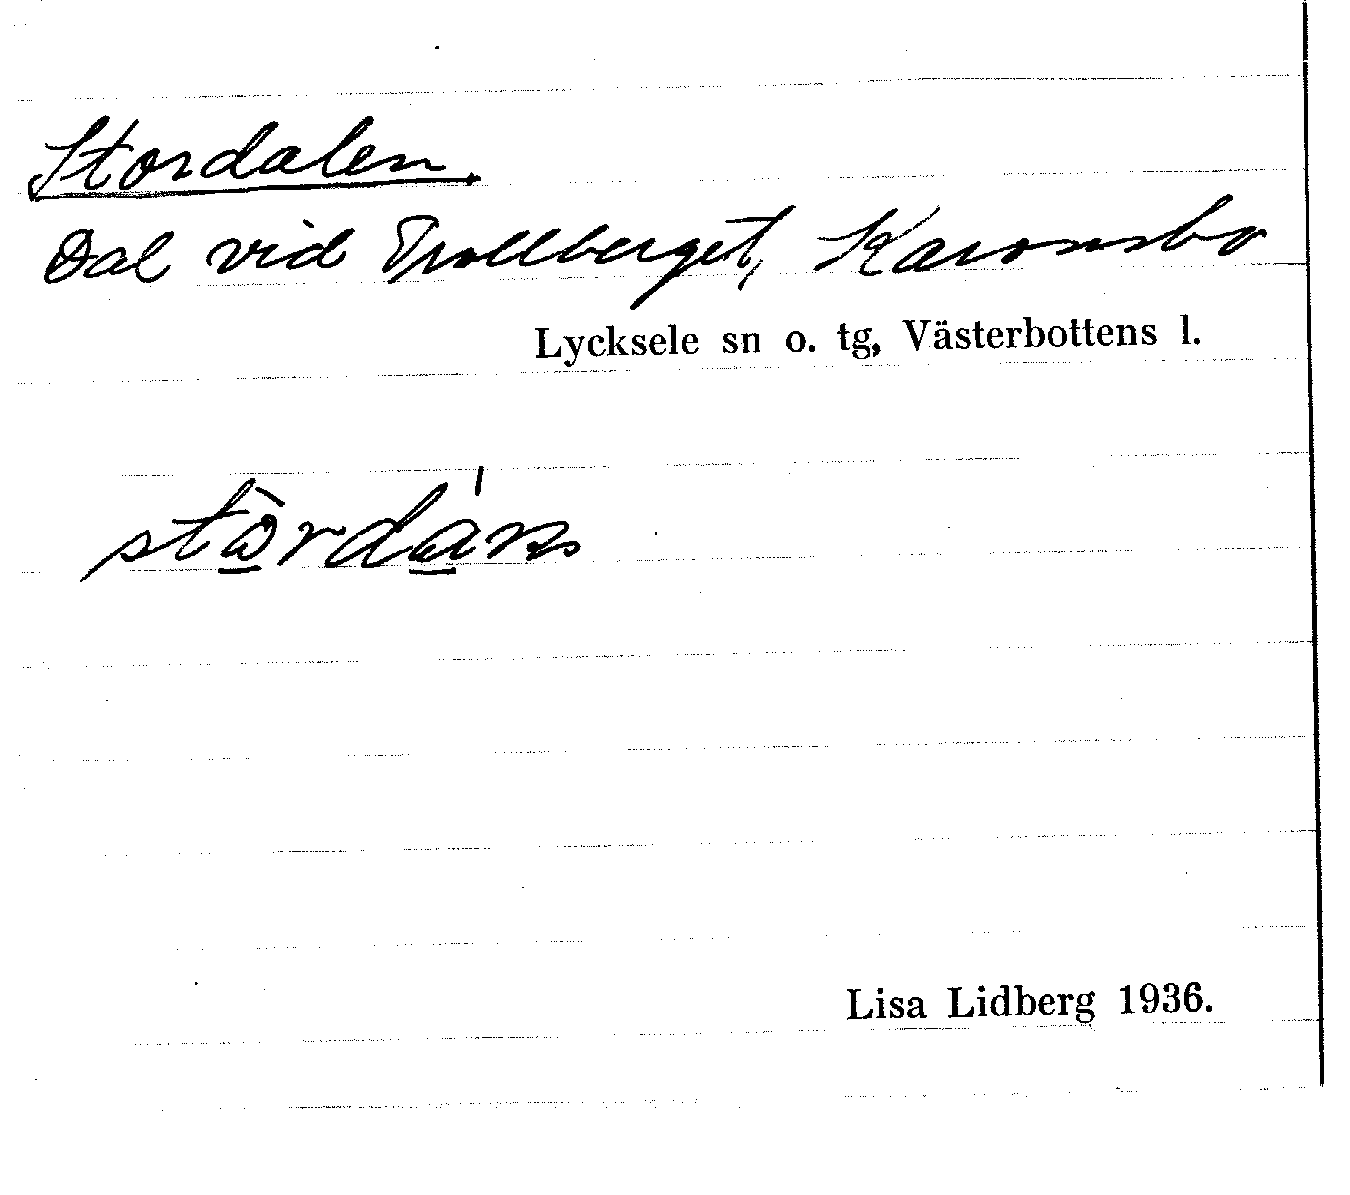 Stordalen.
Dal vid Trollberget, Karonsbo
Lycksele sn o. tg, Västerbottens l.
Lisa Lidberg 1936.